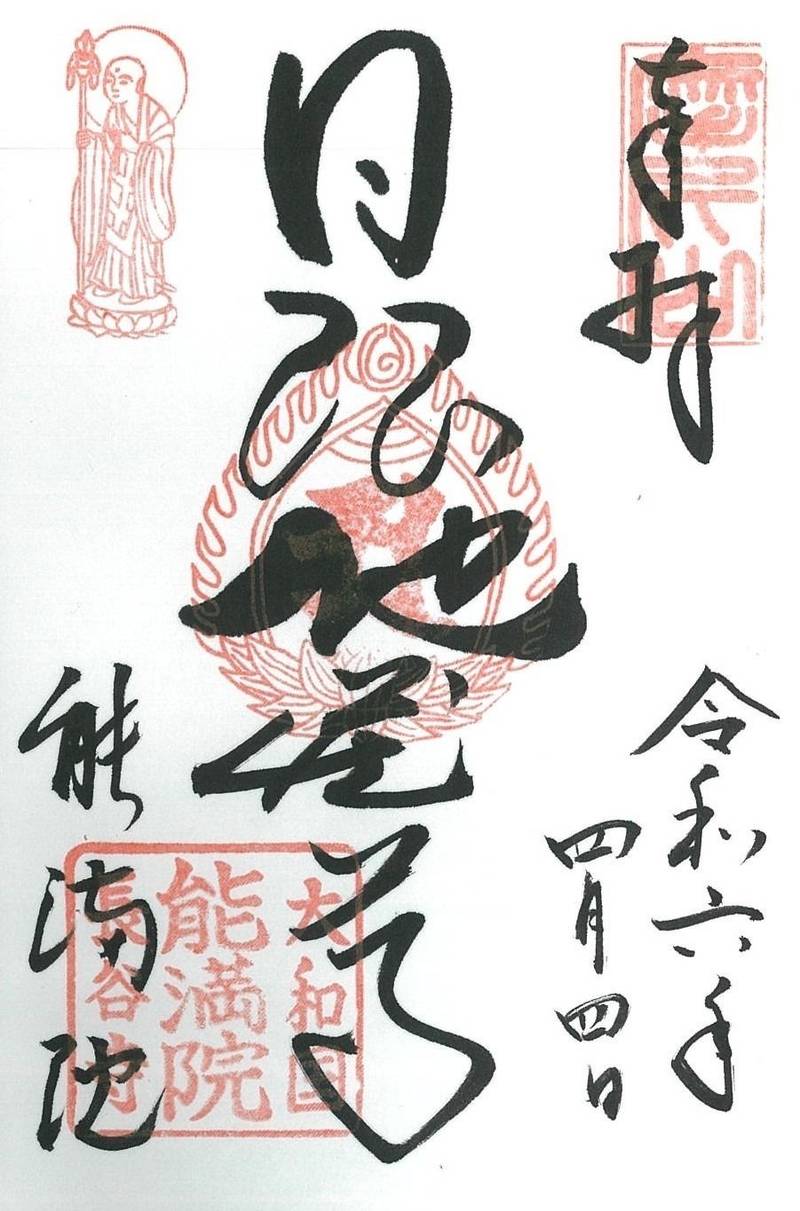 奉拝
令和六年
四月四日
日限地蔵尊
能満院
大和国
能満院
長谷寺